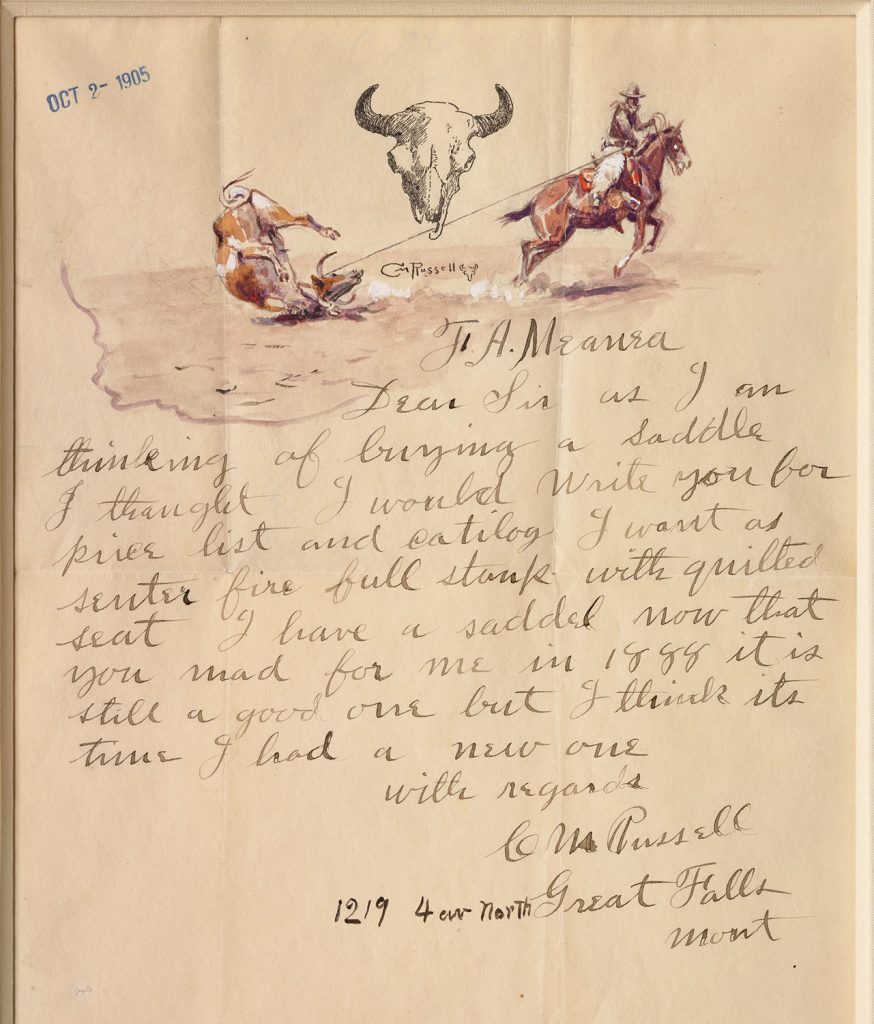 OCT 2- 1905
CM Russell
F. A. Meanea
Dear Sir as I am
thinking of buying a saddle
I thought I would write you for
price list and catilog I want as
senter fire full stamp with quilted
seat I have a saddel now that
you mad for me in 1888 it is
still a good one but I think its
time I had a new one
with regards
C M Russell
1219 4 av North Great Falls
Mont